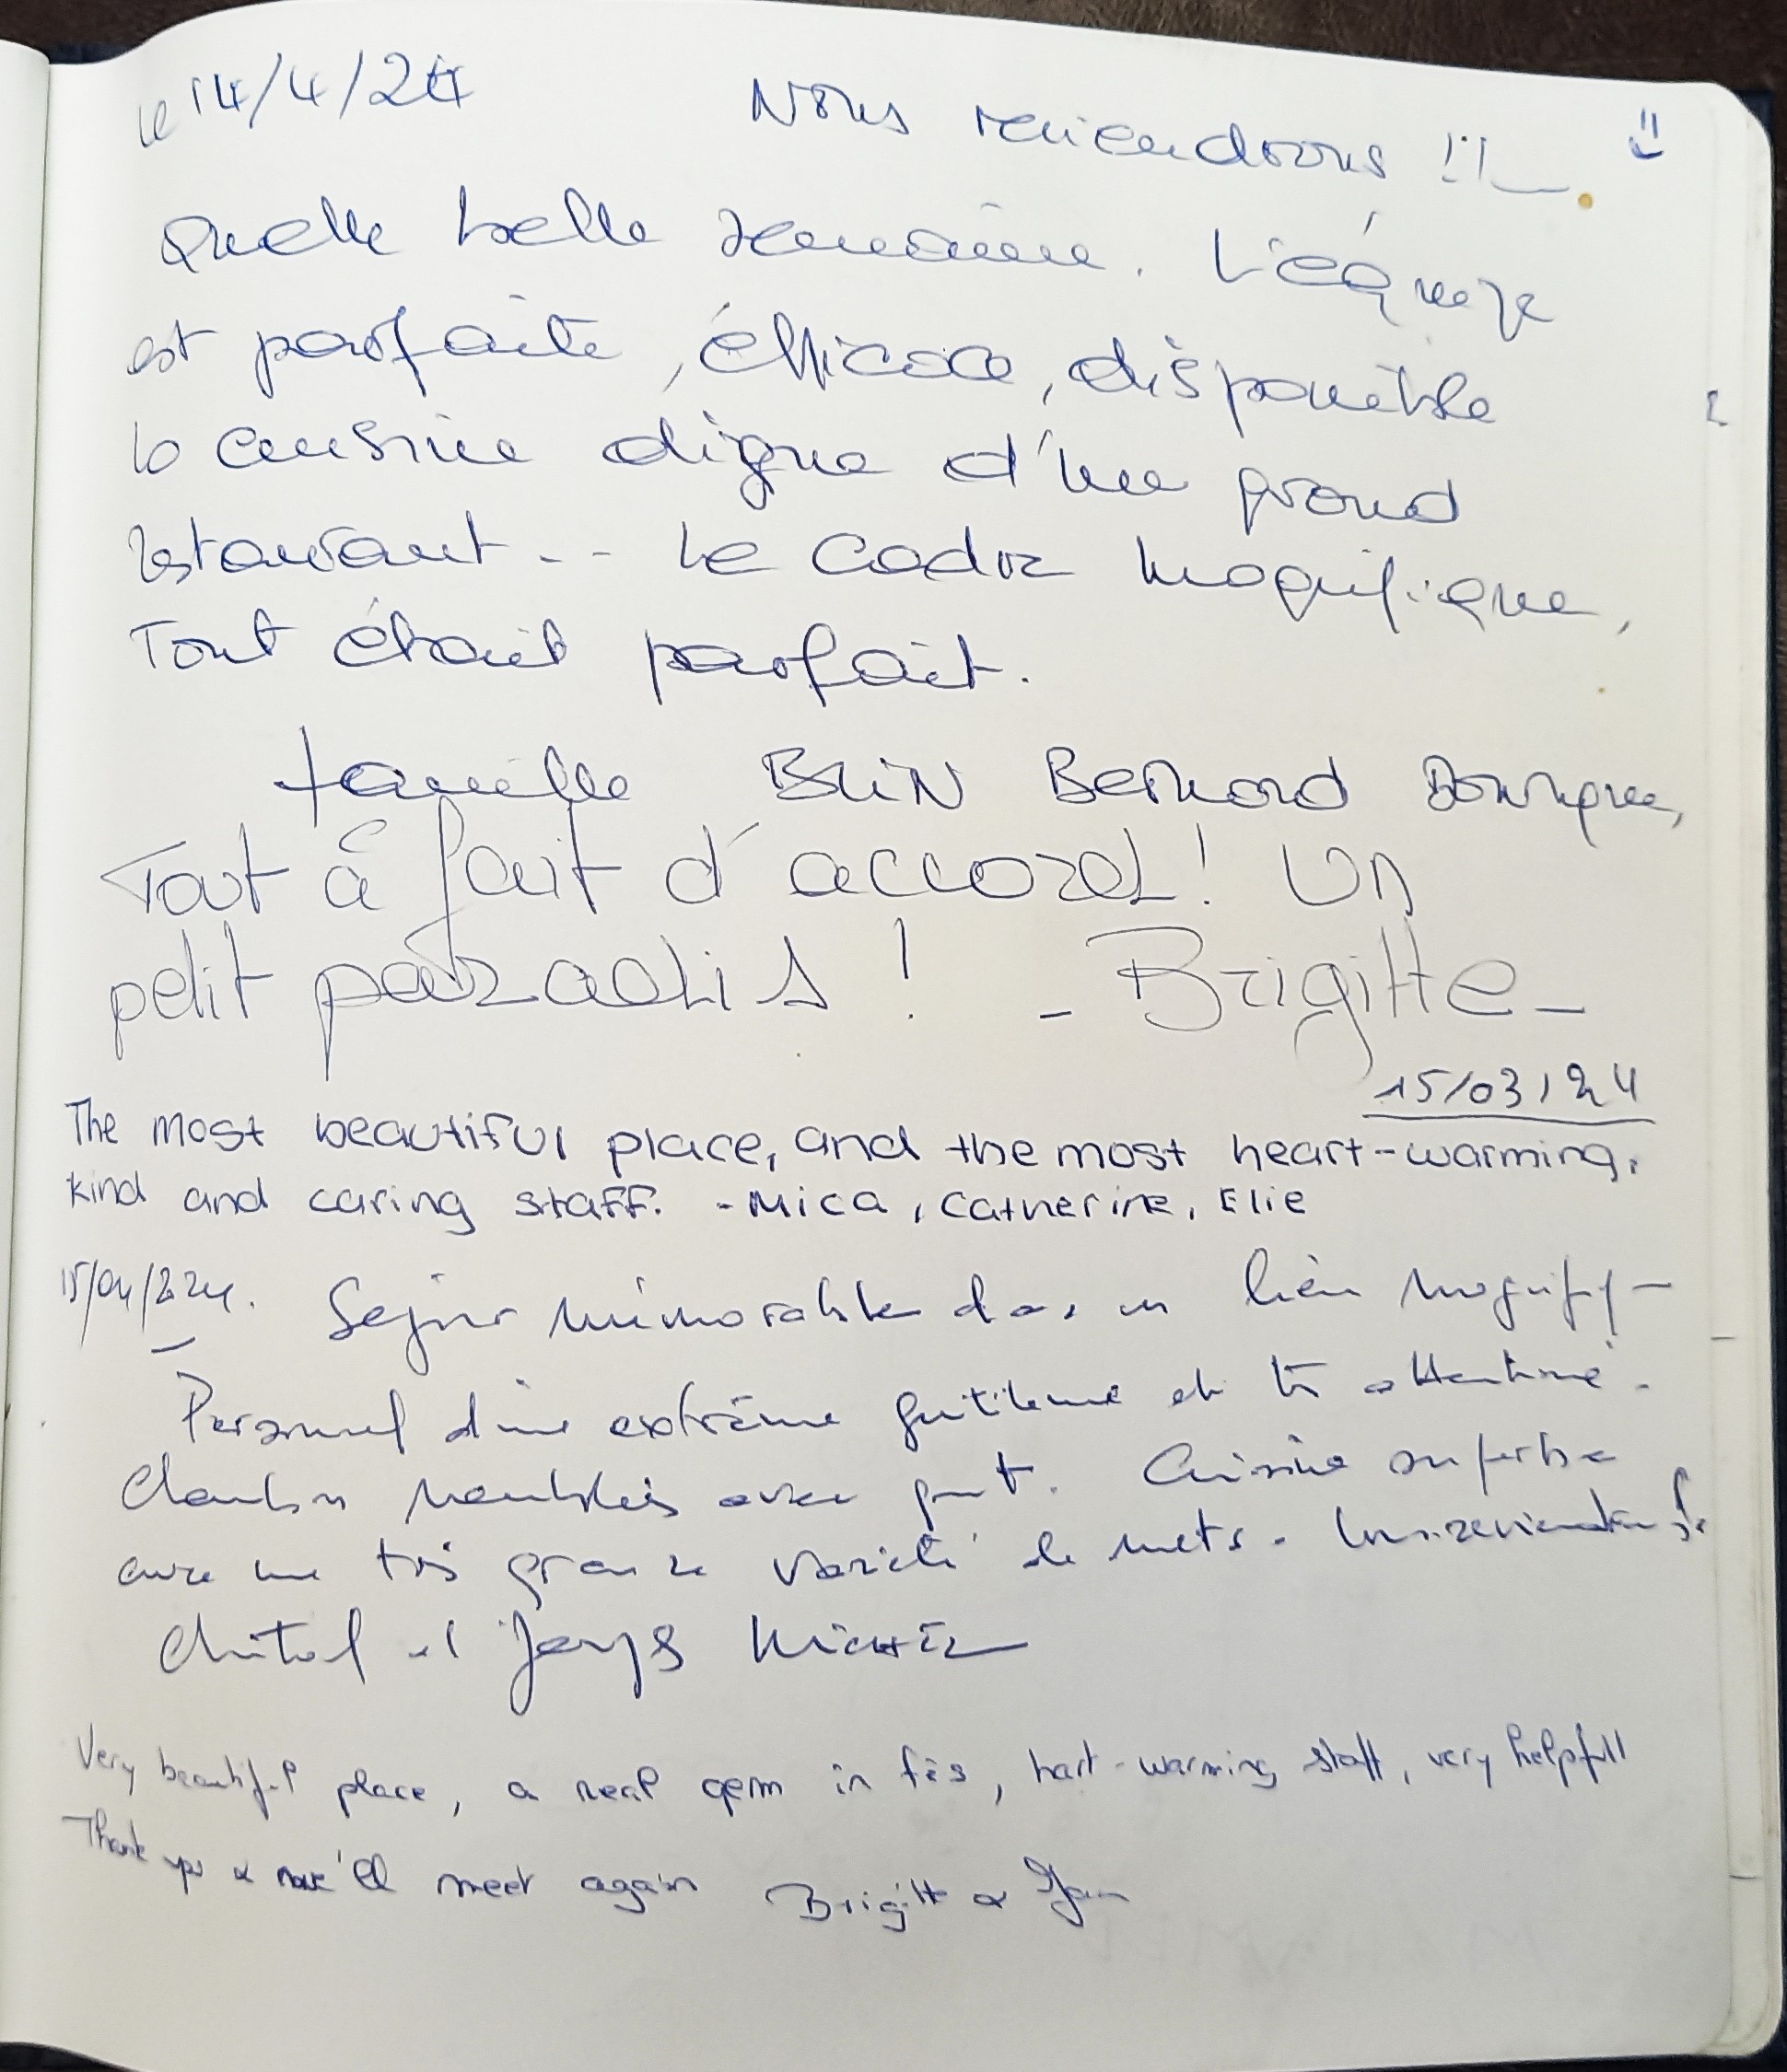 le 14/4/24 Nous reviendrons !!!
Quelle belle semaine. L'équipe
est parfaite, éfficace, disponible
la cuisine digne d'un grand
restaurant -- Le cadre magnifique,
Tout était parfait.
famille BRIN Bernard
Tout à fait d'accord ! Un
petit paradis ! - Brigitte -
15/03/24
The most beautiful place, and the most heart-warming,
kind and caring staff. - Mica, Catherine, Elie
15/04/224. Séjour mémorable dans un lieu magnifiq-
Personnel d'une extrême gentillesse et très attentionné.
Chambres meublées avec goût. Cuisine superbe
avec une très grande variété de mets.
et
Very beautiful place, a real gem in fès, hart-warming staff, very helpfull
Thank you & we'll meet again Brigitte &